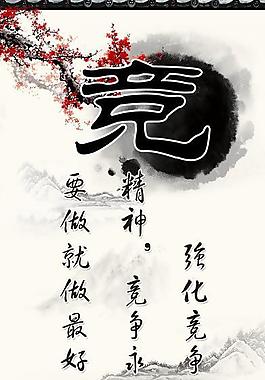 竞
强化竞争
精神，竞争永
要做就做最好